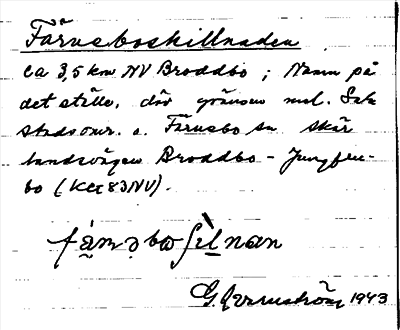 Färneboskillnaden
ca 3,5 km NV Broddbo; Namn på
det ställe, där gränsen mel. Sala
stadsomr. o. Färnebo sn skär
landsvägen Broddbo - Jungfru-
bo (Ka 83NV).
1943